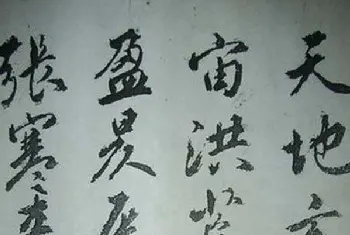 天地玄
宙洪荒
盈昃辰
張寒来